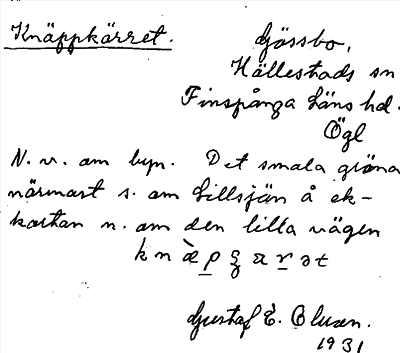 Knäppkärret.
Gössbo,
Hällestads sn
Finspånga läns hd.
Ögl
N. v. om byn. Det smala gröna
närmast s. om Lillsjön å ek-
kartan n. om den lilla vägen
Gustaf E. Clusen.
1931